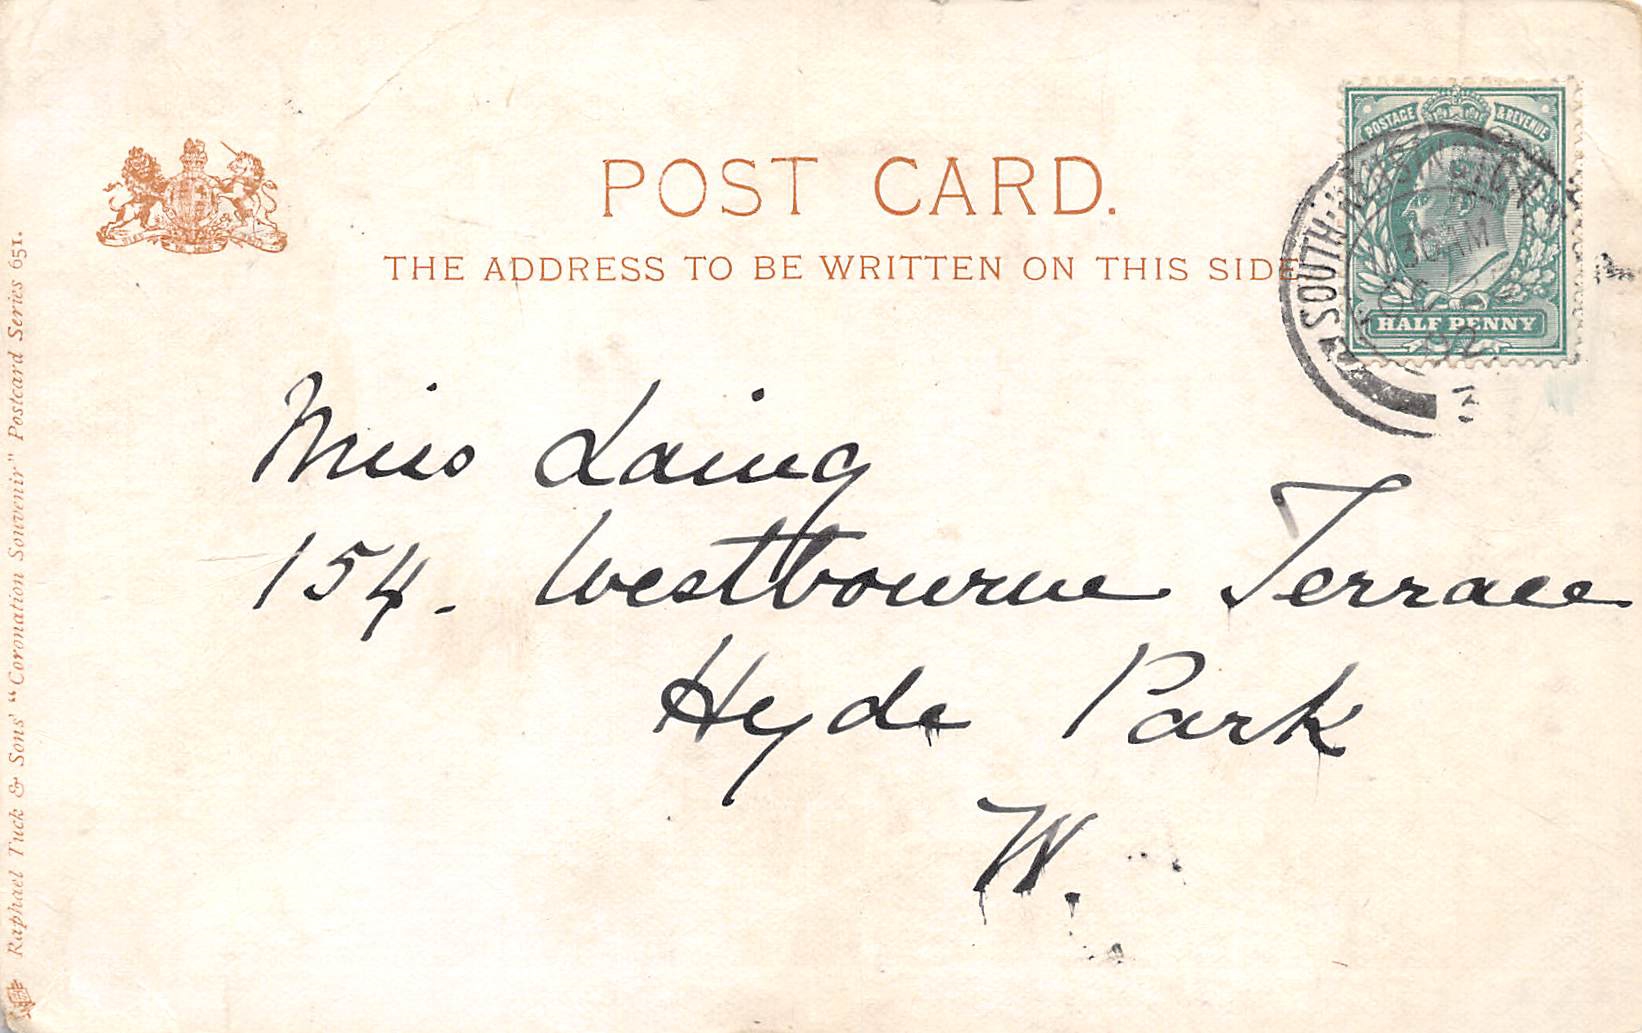 POST CARD.
THE ADDRESS TO BE WRITTEN ON THIS SIDE
POSTAGE & REVENUE
HALF PENNY
SOUTH KENSINGTON
30 AM
02
3
Miss Laing
154. Westbourne Terrace
Hyde Park
W.
Raphael Tuck & Sons' "Coronation Souvenir" Postcard Series 651.